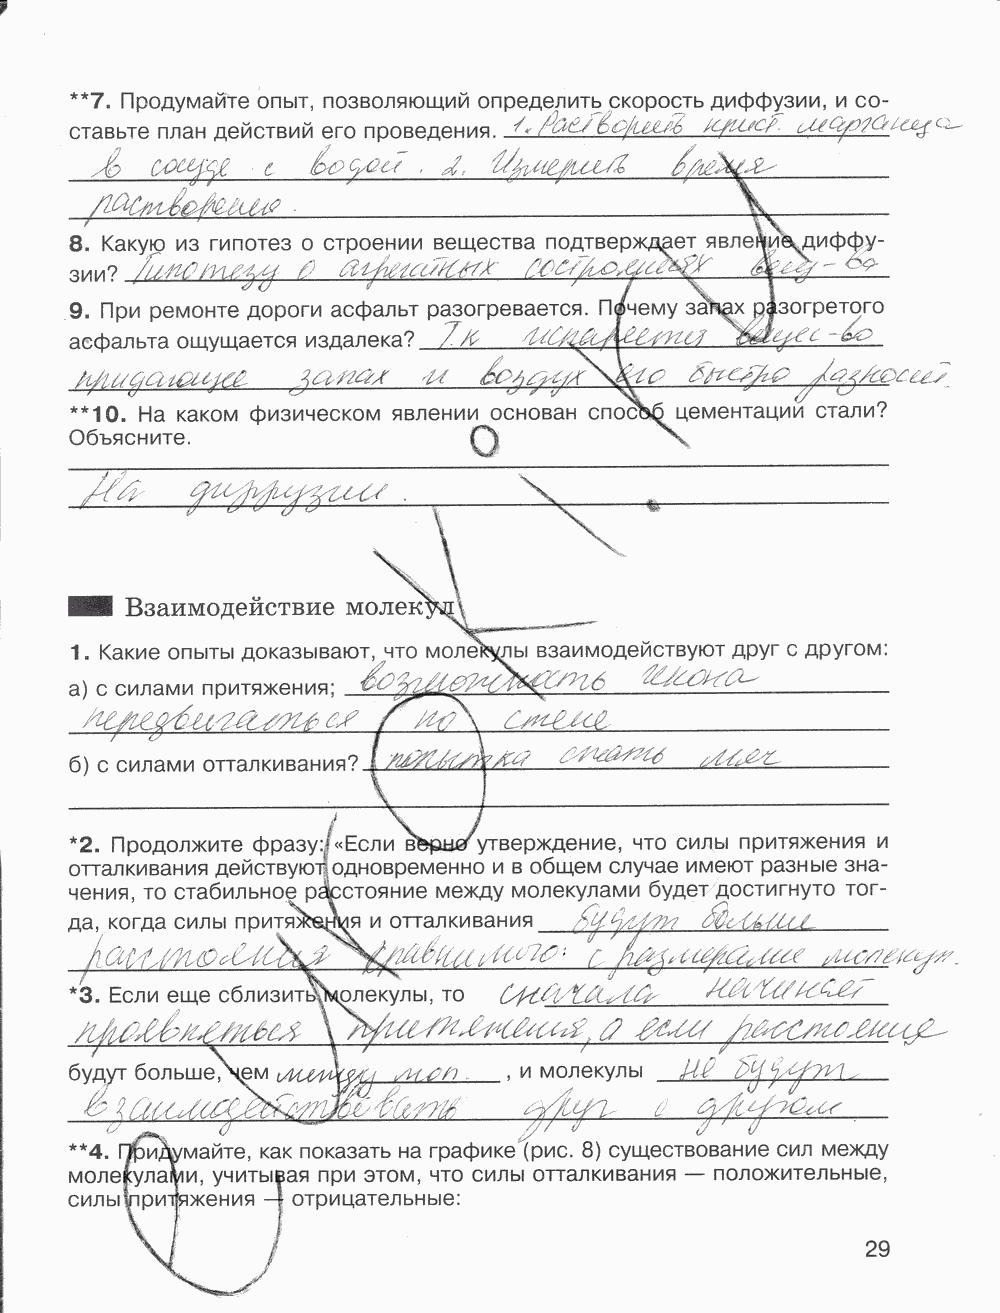 **7. Продумайте опыт, позволяющий определить скорость диффузии, и со-
ставьте план действий его проведения. 1. Растворить крист. марганца
в сосуде с водой. 2. Измерить время
растворения.
8. Какую из гипотез о строении вещества подтверждает явление диффу-
зии? Гипотезу о агрегатных состояниях вещ-ва
9. При ремонте дороги асфальт разогревается. Почему запах разогретого
асфальта ощущается издалека? Т.к испаряется вещес-во
придающее запах и воздух его быстро разносит.
**10. На каком физическом явлении основан способ цементации стали?
Объясните.
На диффузии.
Взаимодействие молекул
1. Какие опыты доказывают, что молекулы взаимодействуют друг с другом:
а) с силами притяжения; возможность гекона
передвигаться по стене
б) с силами отталкивания? попытка сжать мяч
*2. Продолжите фразу: «Если верно утверждение, что силы притяжения и
отталкивания действуют одновременно и в общем случае имеют разные зна-
чения, то стабильное расстояние между молекулами будет достигнуто тог-
да, когда силы притяжения и отталкивания будут больше
расстояния сравнимого с размерами молекул.
*3. Если еще сблизить молекулы, то сначала начинает
проявляться притяжения, а если расстояние
будут больше, чем между мол. , и молекулы не будут
взаимодействовать друг с другом
**4. Придумайте, как показать на графике (рис. 8) существование сил между
молекулами, учитывая при этом, что силы отталкивания — положительные,
силы притяжения — отрицательные:
29